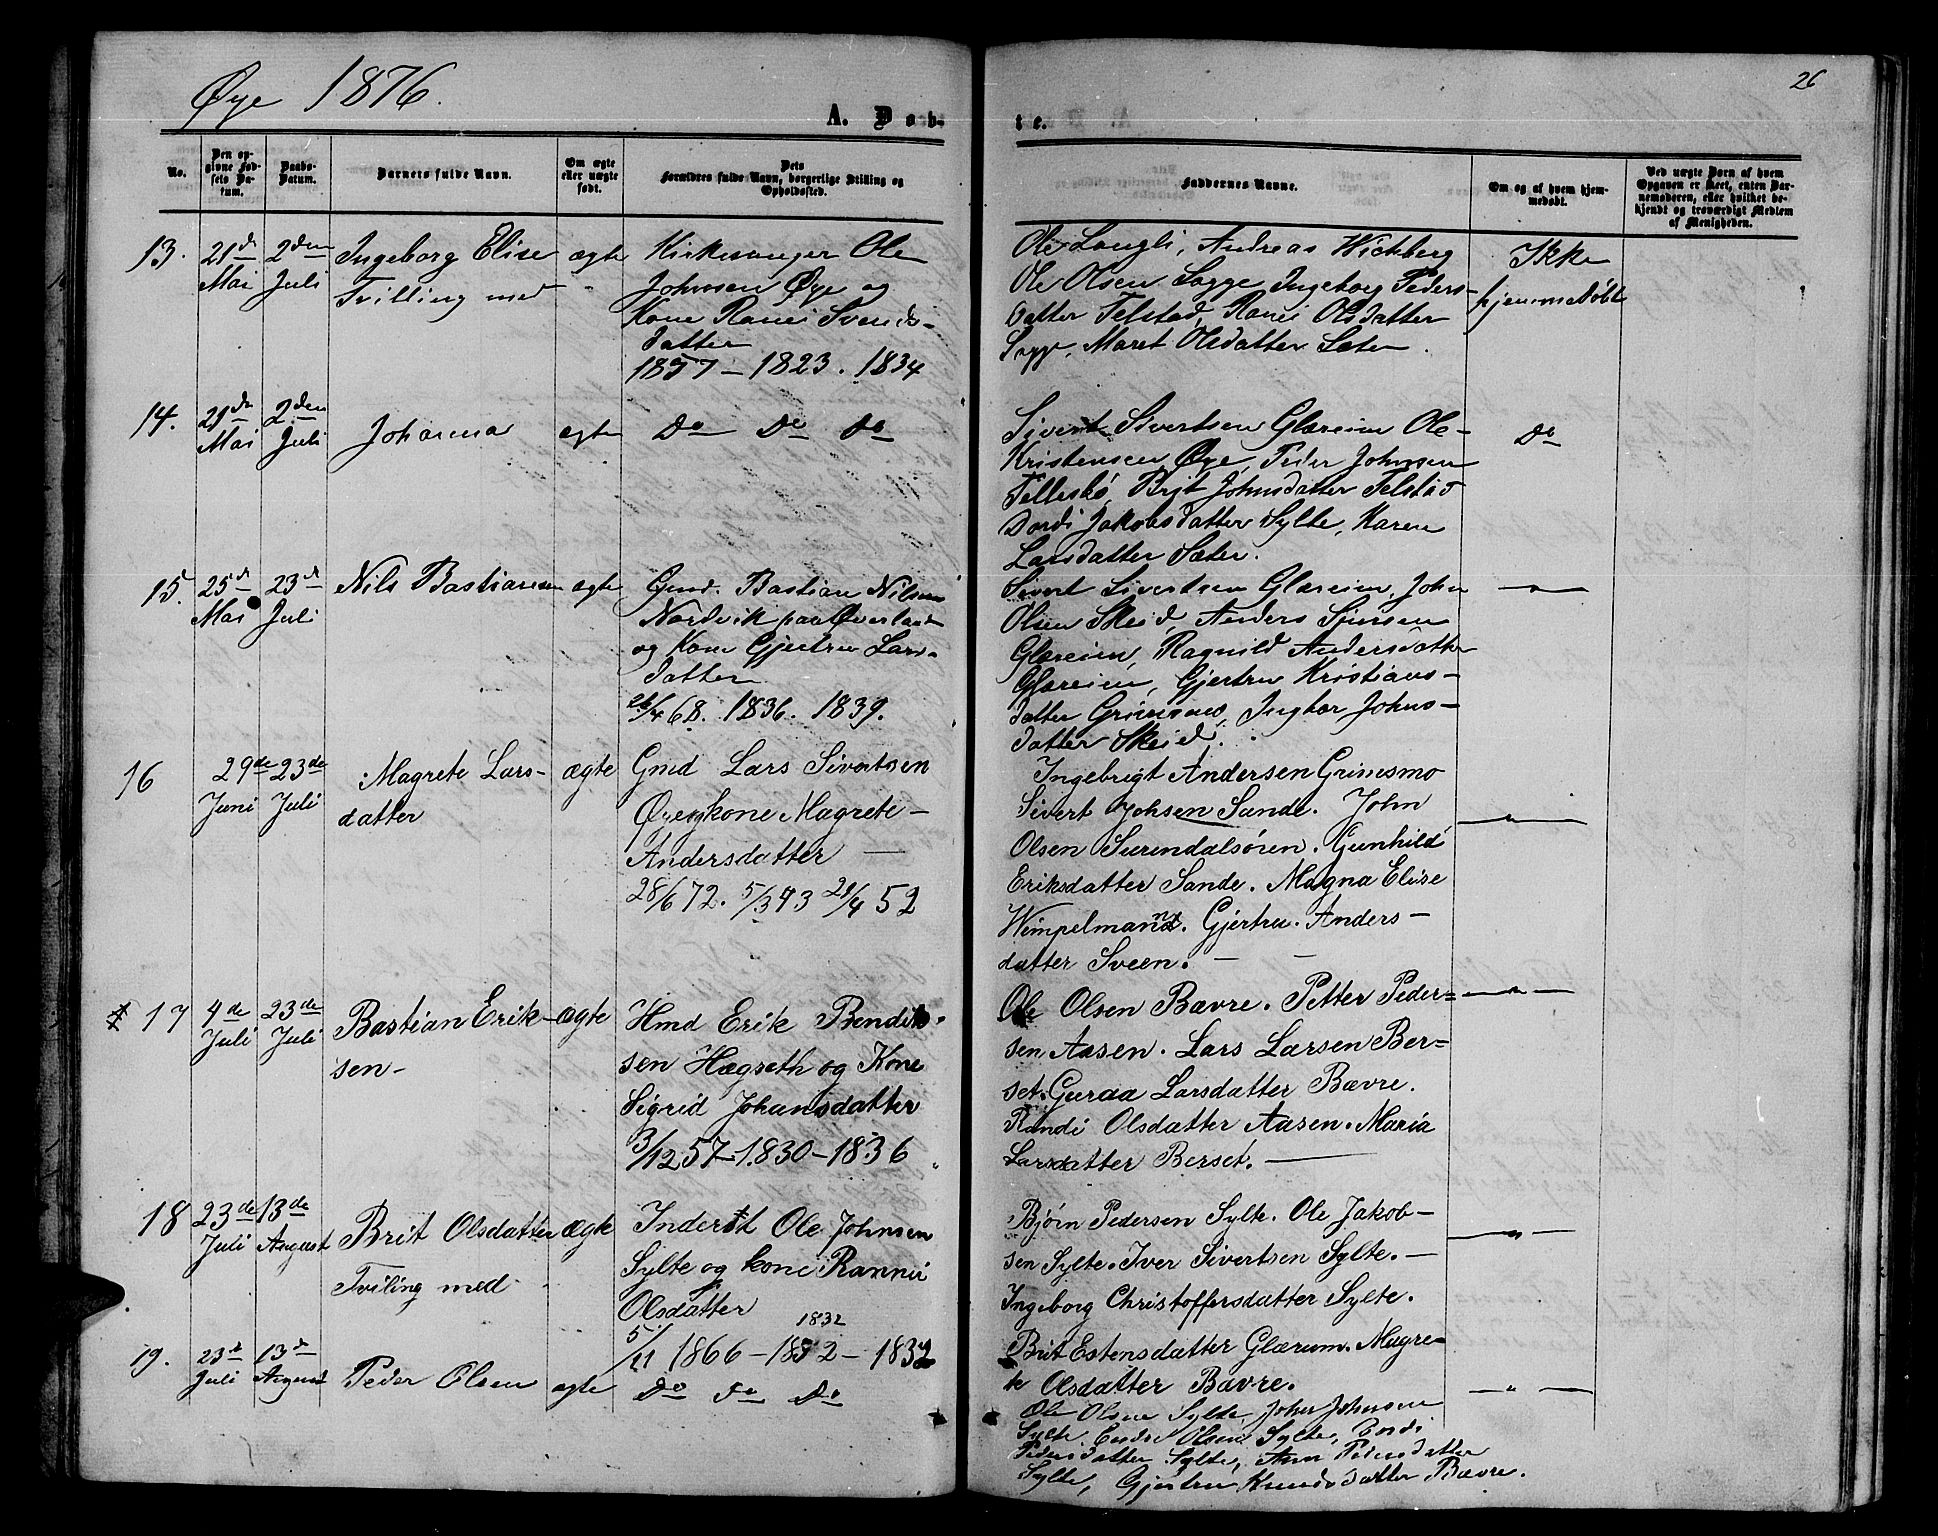 Øye 1876.
26
A. Døb-
te.
No.
Den op-
givne Fød-
sels Da-
tum.
Daabs-
Datum.
Barnets fulde Navn.
Om ægte
eller uægte
født.
Dets
Forældres fulde Navn, borgerlige Stilling og
Opholdssted.
Faddernes Navne.
Om og af hvem hjem-
medøbt.
Ved uægte Børn af hvem
Opgaven er skeet, enten Bar-
nemoderen, eller hvilket be-
kjendt og troværdigt Medlem
af Menigheden.
13.
21de
Mai
2den
Juli
Ingeborg Elise
Tvilling med
ægte
Kirkesanger Ole
Johnsen Øye og
Kone Ranei Svends-
datter
1857 - 1823. 1834
Ole Langli, Andreas Wichberg
Ole Olsen Sogge, Ingeborg Peders-
datter Telstad, Ranei Olsdatter
Sogge, Maret Olsdatter Sæter.
Ikke
hjemmedøbt
14.
21de
Mai
2den
Juli
Johanna
ægte
Do Do do
Sivert Sivertsen Glæreim Ole
Kristensen Øye, Peder Johnsen
Telleskó, Brit Johnsdatter Telstad
Dordi Jakobsdatter Sylte, Karen
Larsdatter Sæter.
Do
15.
25de
Mai
23de
Juli
Nils Bastiansen
ægte
Gmd. Bastian Nilsen
Nordvik paa Øverland
og Kone Gjertru Lars-
datter
26/4 68. 1836. 1839.
Sivert Sivertsen Glæreim, John
Olsen Skeid, Anders Simsen
Glæreim, Ragnild Andersdatter
Glæreim, Gjertru Kristians-
datter Grimsmo, Ingbor Johns-
datter Skeid.
— " —
16
29de
Juni
23de
Juli
Magrete Lars-
datter
ægte
Gmd Lars Sivertsen
Øye og kone Magrete -
Andersdatter —
28/6 72. 5/3 43 21/4 52
Ingebrigt Andersen Grimsmo
Sivert Johsen Sande. John
Olsen Surendalsøren. Gunhild
Eriksdatter Sande. Magna Elise
Wimpelmann. Gjertru. Anders-
datter Sveen. — —
— " —
17
4de
Juli
23de
Juli
Bastian Erik-
sen-
ægte
Hmd Erik Bendik-
sen Hægseth og Kone
Sigrid Johansdatter
3/12 57 - 1830 - 1836
Ole Olsen Bævre. Petter Peder-
sen Aasen. Lars Larsen Ber-
set. Guraa Larsdatter Bævre.
Randi Olsdatter Aasen. Maria
Larsdatter Berset. —
— " —
18
23de
Juli
13de
August
Brit Olsdatter
Tviling med
ægte
Inderst Ole Johnsen
Sylte og kone Rannei
Olsdatter
1832
5/11 1866 - 1832 - 1832
Bjørn Pedersen Sylte. Ole Jakob-
sen Sylte. Iver Sivertsen Sylte. -
Ingeborg Christoffersdatter Sylte.
Brit Estensdatter Glærum. Magre-
te Olsdatter Bævre.
— " —
19.
23d
Juli
13d
August
Peder Olsen
ægte
Do do Do
Ole Olsen Sylte, John Johnsen
Sylte, Endre Olsen Sylte, Dordi
Pedersdatter Sylte, Ann Pedersdatter
Sylte, Gjertru Knudsdatter Bævre.
— " —